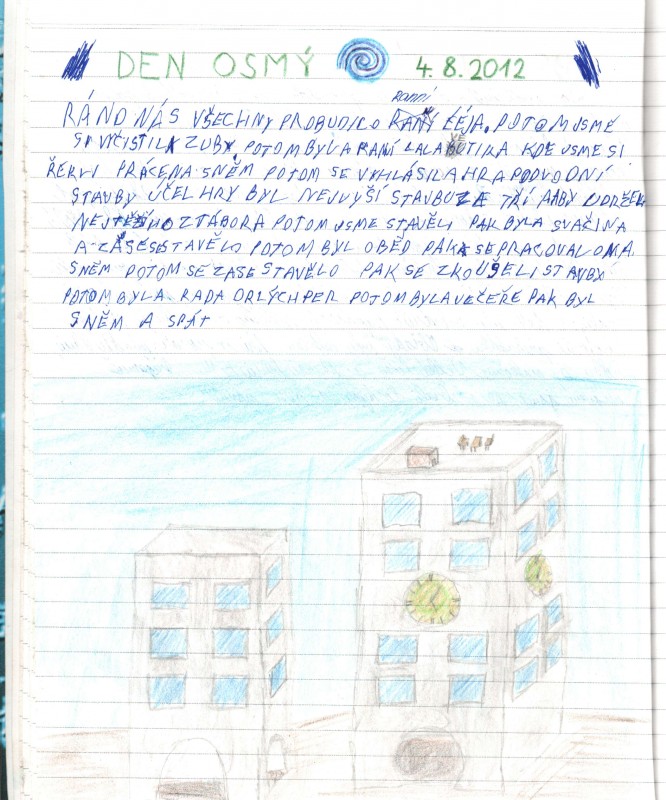 DEN OSMÝ 4.8.2012
RANNÍ
RÁNO NÁS VŠECHNY PROBUDILO RANÝ POTOM JSME
SI VYČISTILI ZUBY, POTOM BYLA RANÍ KDE JSME SI
ŘEKLI PRÁCE NA SNĚM POTOM SE VYHLÁSILA HRA PODVODNÍ
STAVBY ÚČEL HRY BYL NEJVYŠÍ STAVBU ZE TŘÍ ABY UDRŽELA
Z TÁBORA POTOM JSME STAVĚLI PAK BYLA SVAČINA
A ZASE SE STAVĚLO POTOM BYL OBĚD PAK SE PRACOVALO NA
SNĚM POTOM SE ZASE STAVĚLO PAK SE ZKOUŠELI STAVBY
POTOM BYLA RADA ORLÝCH PER POTOM BYLA VEČEŘE PAK BYL
SNĚM A SPÁT